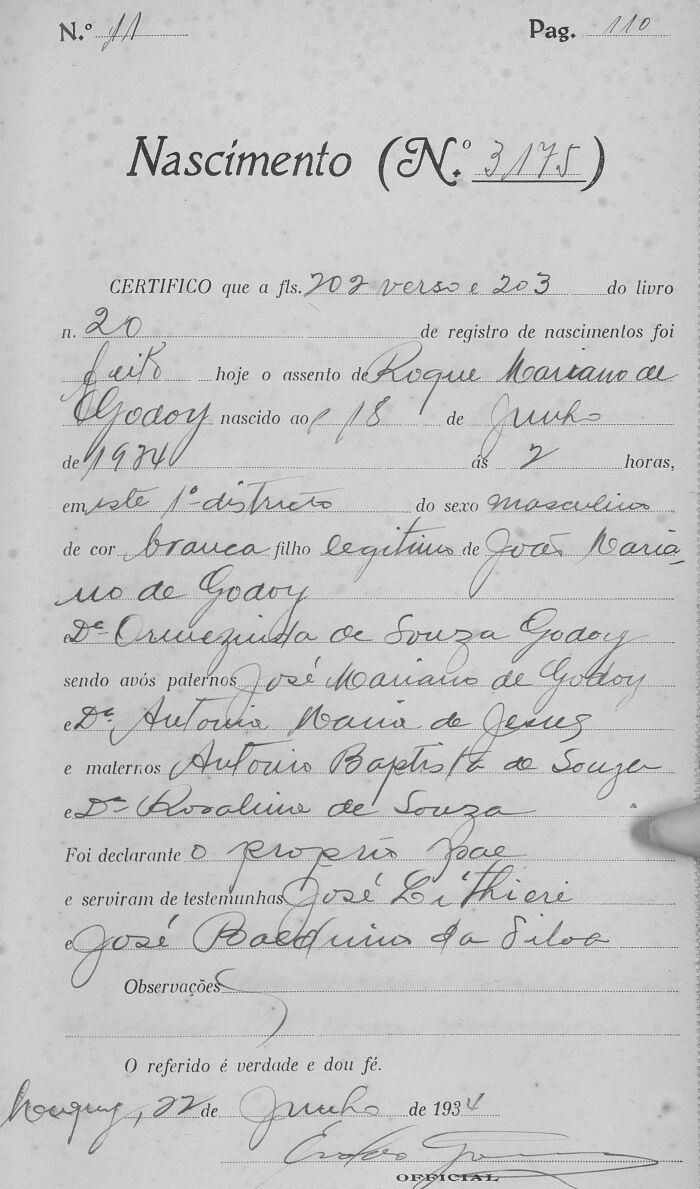 N.º 11 Pag. 110
Nascimento (N.º 3175)
CERTIFICO que a fls. 202 verso e 203 do livro
n. 20 de registro de nascimentos foi
feito hoje o assento de Roque Mariano de
Godoy nascido aos 18 de Junho
de 1934 ás 2 horas,
em este 1º districto do sexo masculino
de cor branca filho legitimo de João Maria-
no de Godoy
e Dª Ormezinda de Souza Godoy
sendo avós paternos José Mariano de Godoy
e Dª Antonia Maria de Jesus
e maternos Antonio Baptista de Souza
e Dª Rosalina de Souza
Foi declarante o proprio pae
e serviram de testemunhas José
e José Balduino da Silva
Observações
O referido é verdade e dou fé.
22 de Junho de 1934
OFFICIAL